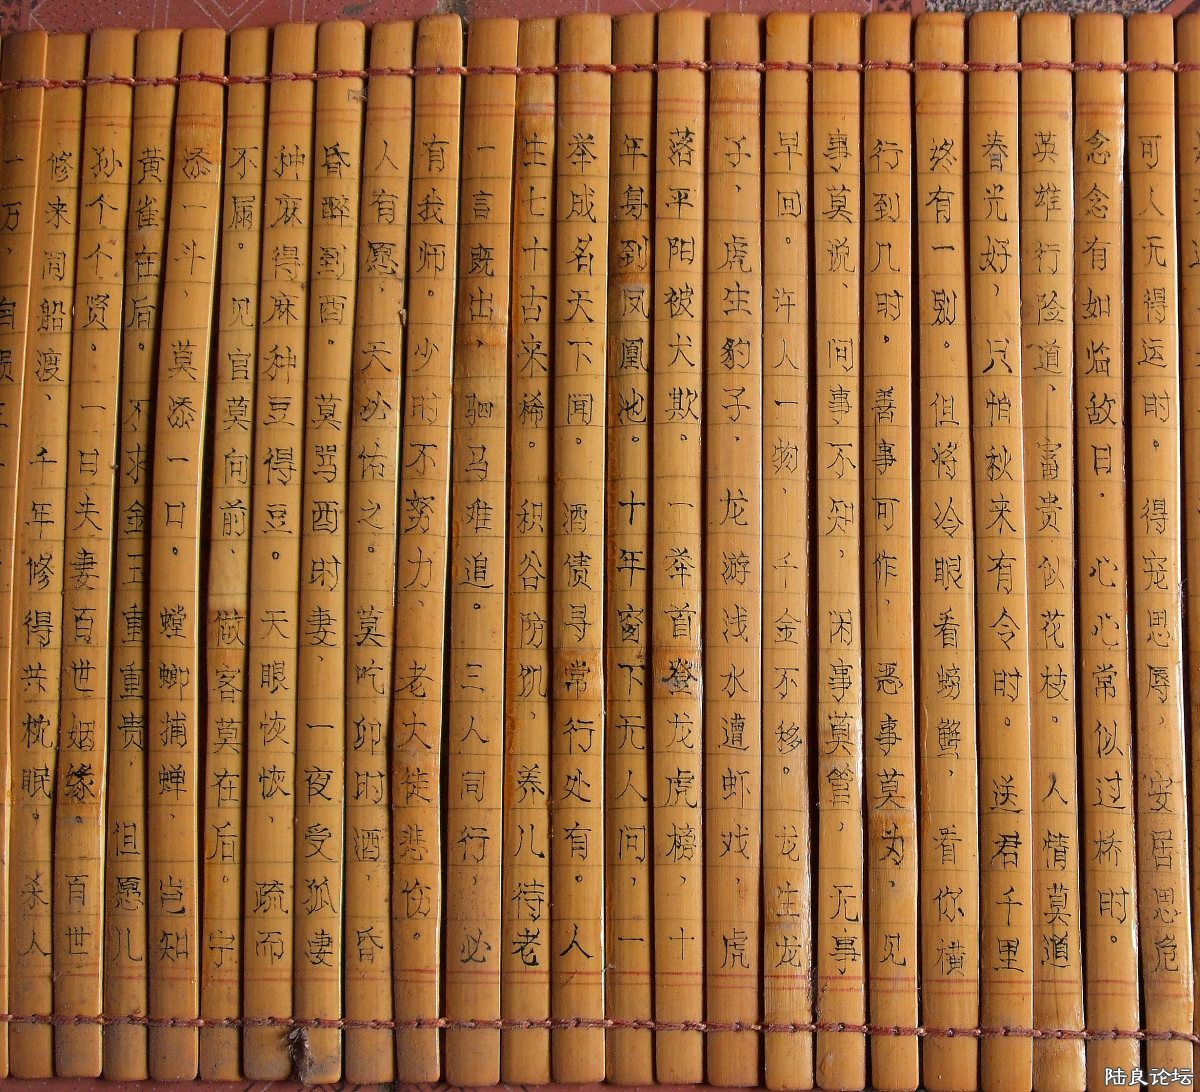 可人无得运时。得宠思辱 安居思危
念念有如临敌日,心心常似过桥时。
英雄行险道,富贵似花枝。人情莫道
春光好,只怕秋来有令时。送君千里
终有一别。但将冷眼看螃蟹,看你横
行到几时。善事可作,恶事莫为,见
事莫说,问事不知,闲事莫管,无事
早回。许人一物,千金不移。龙生龙
子,虎生豹子,龙游浅水遭虾戏,虎
落平阳被犬欺。一举首登龙虎榜,十
年身到凤凰池。十年窗下无人问,一
举成名天下闻。酒债寻常行处有。人
生七十古来稀。积谷防饥,养儿待老
一言既出,驷马难追。三人同行,必
有我师。少时不努力,老大徒悲伤。
人有愿,天必佑之。莫吃卯时酒,昏
昏醉到酉。莫骂酉时妻,一夜受孤凄
种麻得麻种豆得豆。天眼恢恢,疏而
不漏。见官莫向前,做客莫在后。宁
添一斗,莫添一口。螳螂捕蝉,岂知
黄雀在后。不求金玉重重贵,但愿儿
孙个个贤。一日夫妻百世姻缘。百世
修来同船渡,千年修得共枕眠。杀人
一万,自损三
陆良论坛